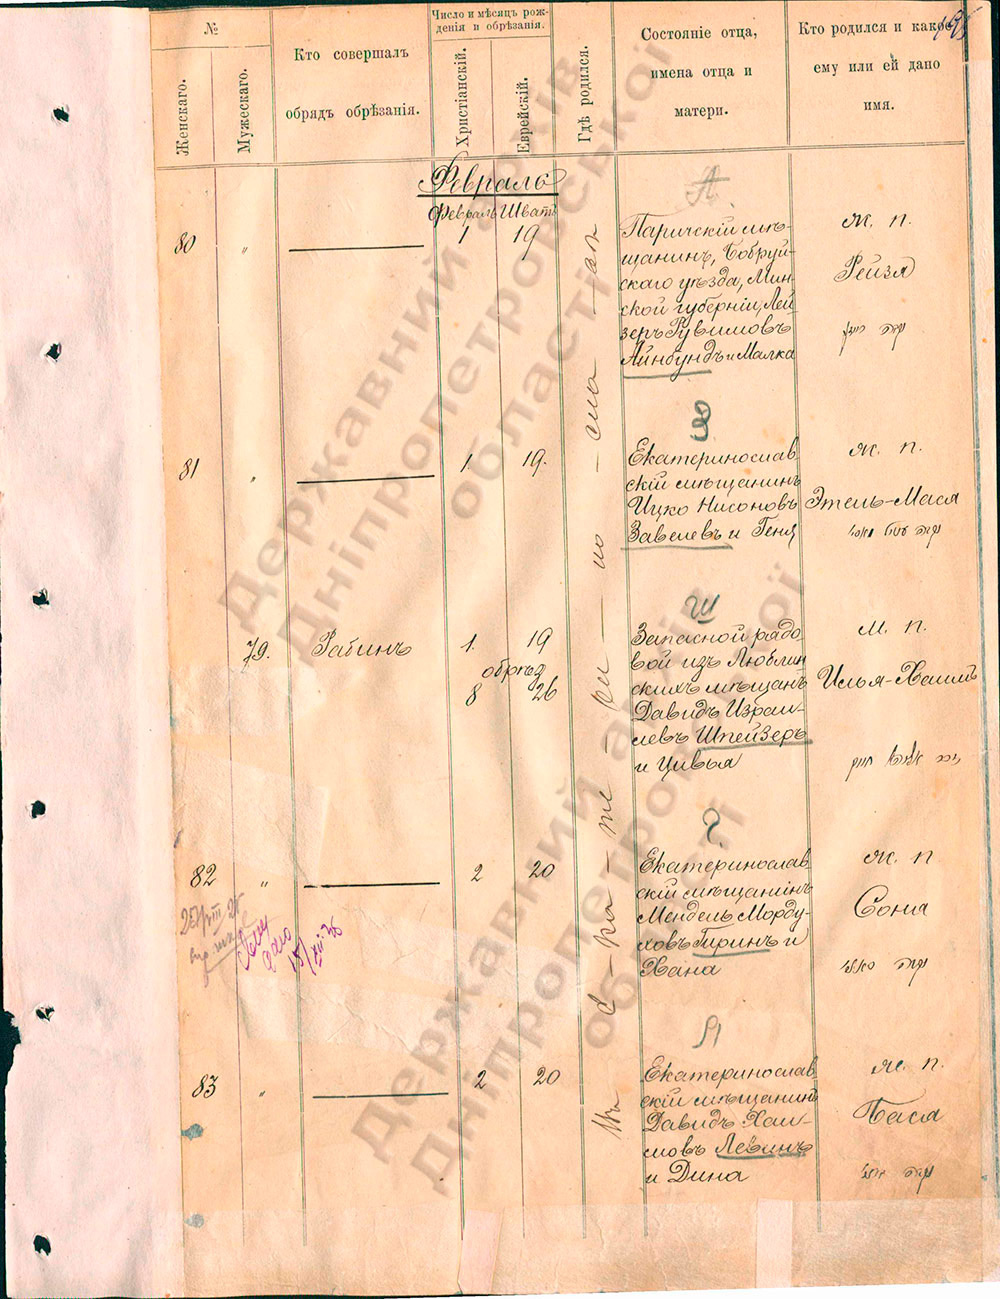 №
Женскаго.
Мужескаго.
Кто совершалъ
обрядъ обрѣзанія.
Число и мѣсяцъ рож-
денія и обрѣзанія.
Христіанскій.
Еврейскій.
Гдѣ родился.
Состояніе отца,
имена отца и
матери.
Кто родился и какое
ему или ей дано
имя.
Февраль
Февраль Шватъ
80
"
1
19
Паричскій мѣ-
щанинъ, Бобруй-
скаго уѣзда, Мин-
ской губерніи, Лей-
зеръ Рувимовъ
Айнбундъ и Малка
Ж. п.
Рейзя
81
"
1
19.
Екатеринослав
скій мѣщанинъ
Ицко Нисоновъ
Завелевъ и Геня
Ж. п.
Этель-Мася
79.
Рабинъ
1.
19
обрѣзд
8
26
Запасной рядо
вой изъ Люблин
скихъ мѣщанъ
Давидъ Израи-
левъ Шпейзеръ
и Цивья
М. п.
Илья-Хаимъ
82
"
2
20
Екатеринослав
скій мѣщанинъ
Мендель Морду-
ховъ Гиринъ и
Хана
Ж. п
Соня
83
"
2
20
Екатеринослав
скій мѣщанинъ
Давидъ Хаи-
мовъ Левинъ
и Дина
Ж. п.
Бася
Державний архів
Дніпропетровської
області
Державний архів
Дніпропетровської
області